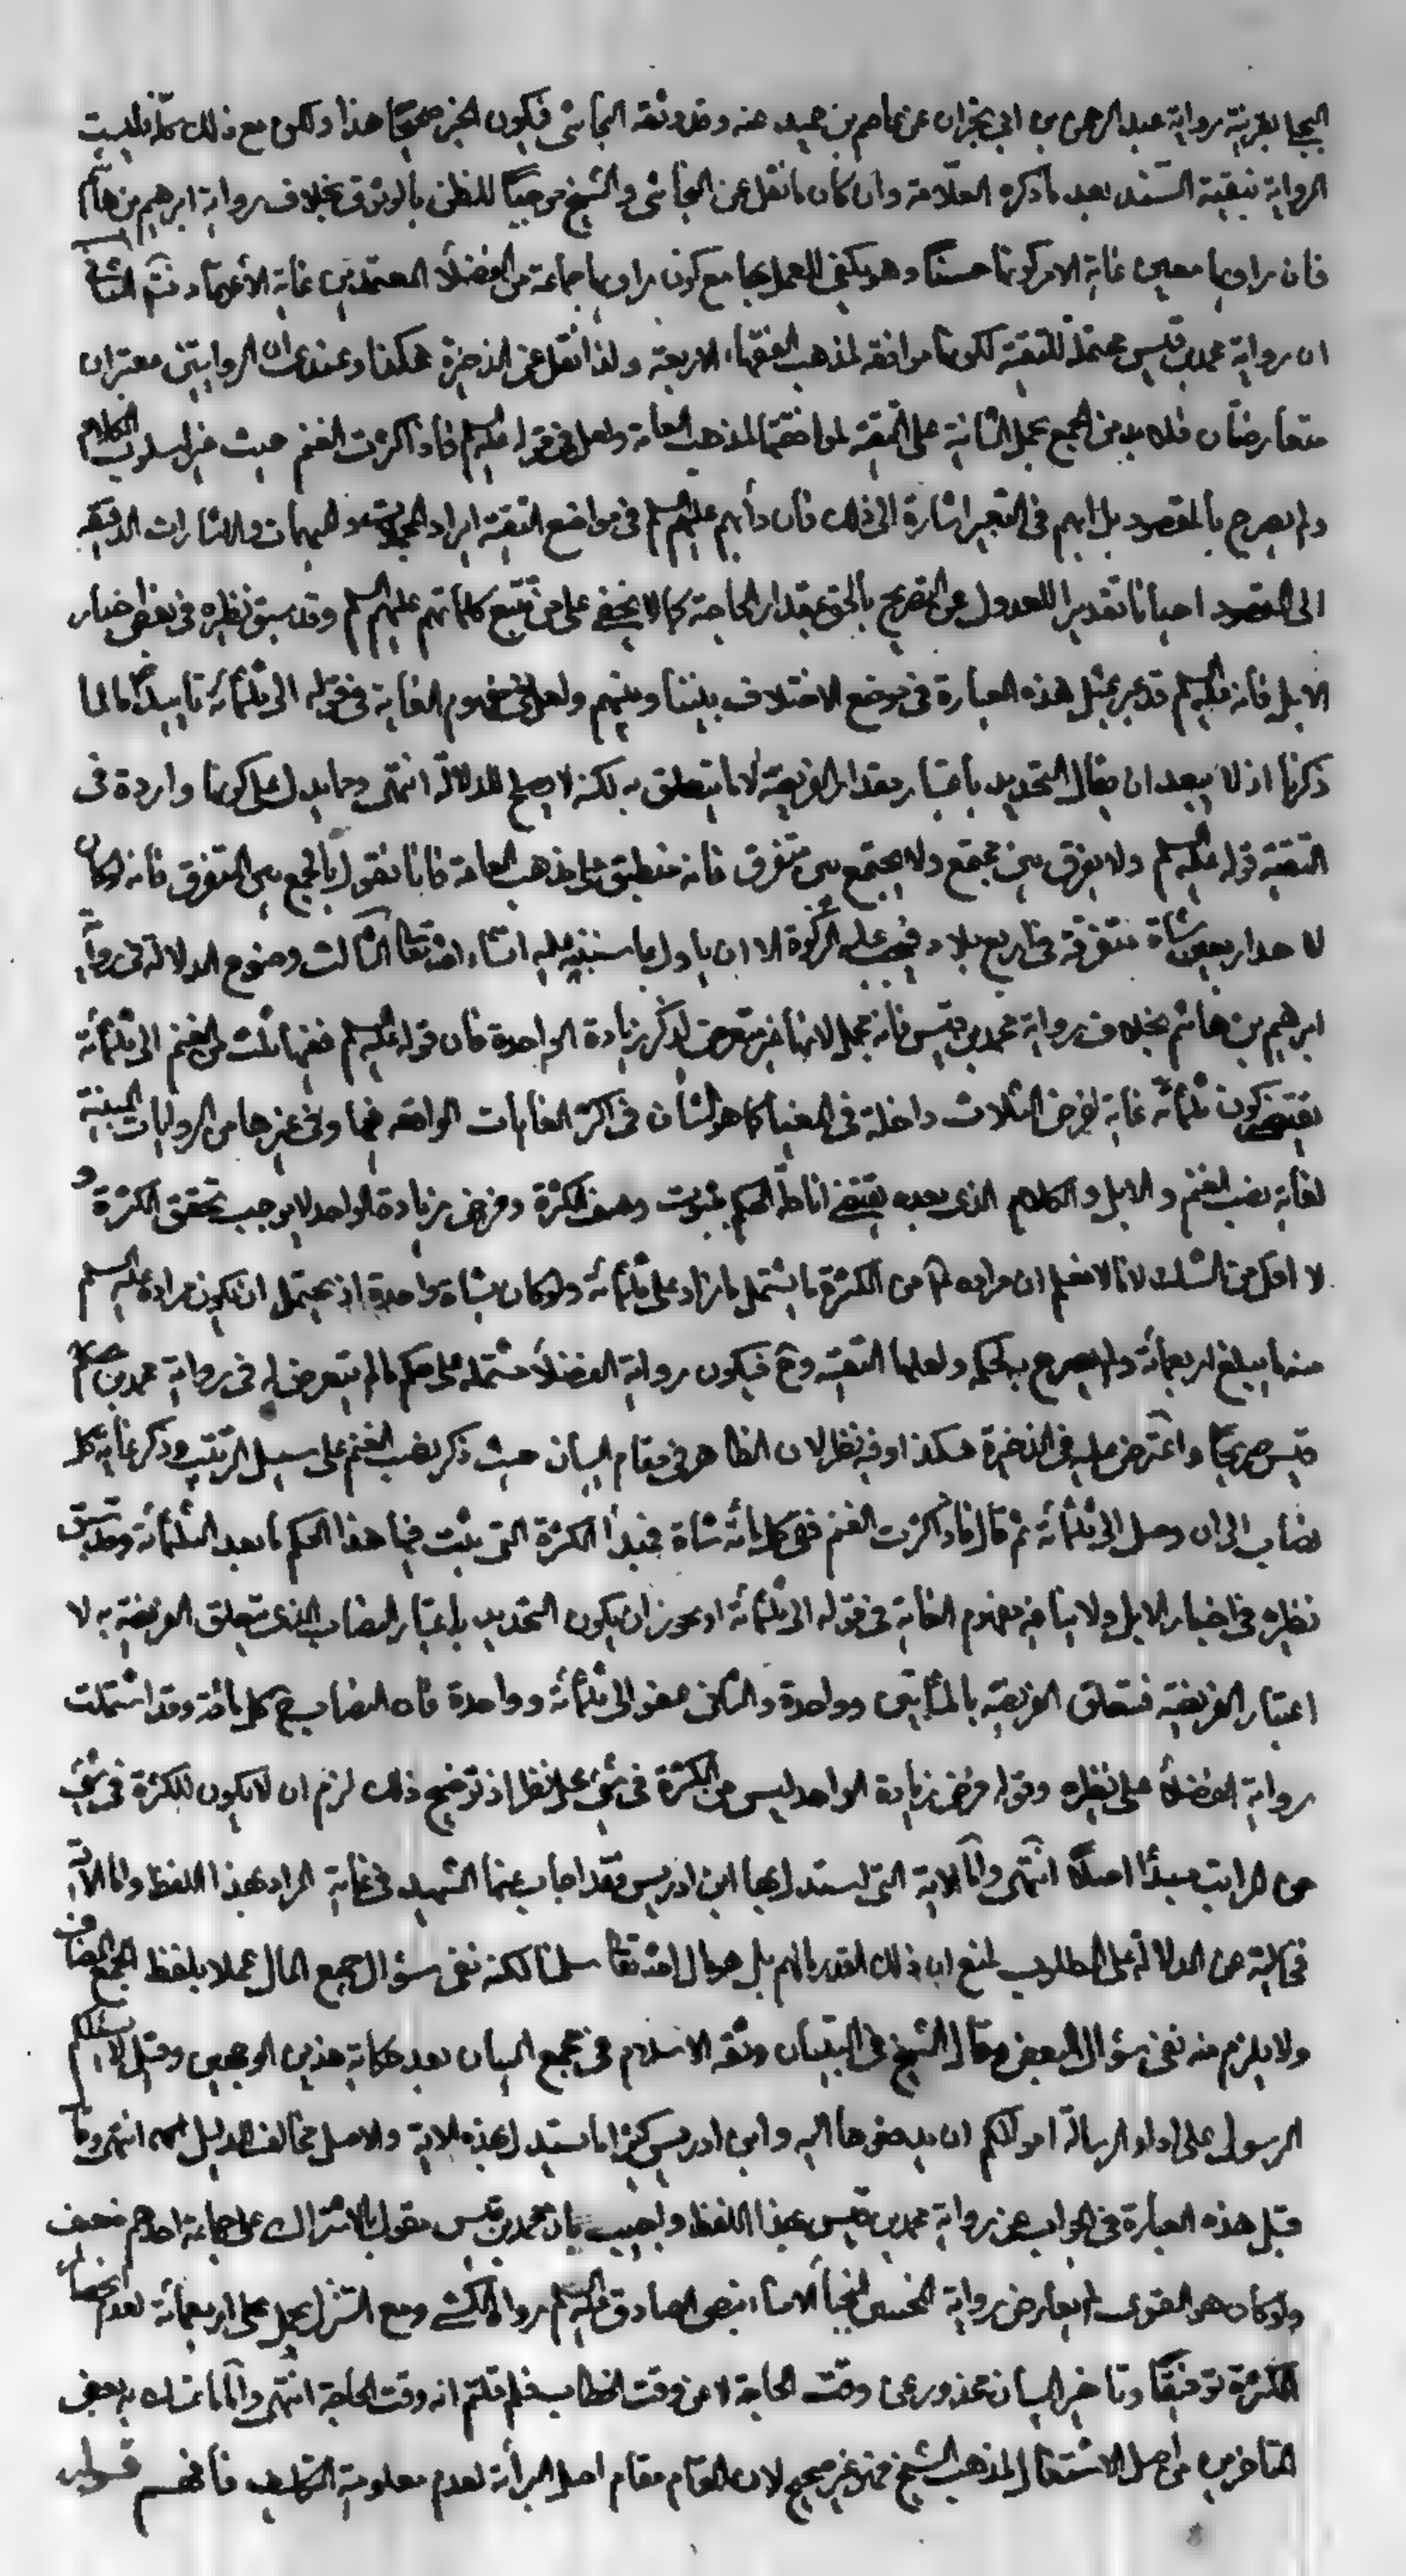 البجلى بقرينة رواية عبد الرحمن بن ابي نجران عن عاصم بن حميد عنه وقد وثقه النجاشى فيكون الخبر صحيحا هذا ولكن مع ذلك كله فليست
الرواية نبقية السند بعد ما ذكره العلامة وان كان ما نقل عن النجاشى والشيخ موجبا للظن بالوثوق بخلاف رواية ابرهيم بن هاشم
فان راويها معين غاية الامر كونها حسنا وهو يكفى للعمل بها مع كون راويها جماعة من الفضلاء المعتمدين غاية الاعتماد الثانى
ان رواية محمد بن قيس محتملة للتقية لكونها موافقة لمذهب الفقهاء الاربعة ولذا نقل عن الذخيرة هكذا وعندى ان الروايتين معتبران
متعارضان فلا بد من الجمع بحمل الثانية على التقية لموافقتها لمذهب العامة ولعل فى قوله عليه السلم فاذا كثرت الغنم حيث غير اسلوب الكلام
ولم يصرح بالمقصود بل ابهم فى التعبير اشارة الى ذلك فان دأبهم عليهم السلم فى مواضع التقية ايراد المبهمات والاشارات الدقيقة
الى المقصود احيانا تقديرا للعدول عن التصريح بالحق بمقدار الحاجة كما لا يخفى على من تتبع كلماتهم عليهم السلم وقد سبق نظيره فى بعض اخبار
الابل فانه عليه السلم قد عبر بمثل هذه العبارة فى موضع الاختلاف بيننا وبينهم ولعل فى مفهوم الغاية فى قوله الى ثلثمائة تاييدا ما لما
ذكرنا اذ لا يبعد ان يقال التحديد باعتبار مقدار الفريضة لا ما يتعلق به لكنه لا يصلح للدلالة انتهى ومما يدل على كونها واردة فى
التقية قوله عليه السلم ولا يفرق بين مجتمع ولا يجتمع بين متفرق فانه منطبق على مذهب العامة فانا نقول بالجمع بين المتفرق فانه لو كان
لاحد اربعون شاة متفرقة فى اربع بلاد فيجب عليه الزكوة الا ان ياول بما سننبه عليه انشاء الله تعا الثالث وضوح الدلالة فى رواية
ابرهيم بن هاشم بخلاف رواية محمد بن قيس فانه مجمل لانها غير متعرض لذكر زيادة الواحدة فان قوله عليه السلم ففيها ثلث من الغنم الى ثلثمائة
يقتضى كون ثلثمائة غاية لفرض الثلاث داخلة فى المغيا كما هو الشان فى اكثر الغايات الواقعة فيها وفى غيرها من الروايات المبينة
لغاية نصب الغنم والابل والكلام الذى بعده يقتضى اناطة الحكم بثبوت وصف الكثرة وفرض زيادة الواحد لا يوجب تحقق الكثرة و
لا اقل من الشك لانا لا نعلم ان مراده من الكثرة ما يشتمل ما زاد على ثلثمائة ولو كان بشاة واحدة اذ يحتمل ان يكون مراده عليه السلم
منه ما يبلغ اربعمائة ولم يصرح بالحكم ولعلها التقية وح فيكون رواية الفضلاء مشتملة على حكم ما لم يتعرض له فى رواية محمد بن
قيس صريحا واعترض عليه فى الذخيرة هكذا وفيه نظر لان الظاهر فى مقام البيان حيث ذكر نصب الغنم على سبيل الترتيب وذكر غاية كل
نصاب الى ان وصل الى ثلثمائة ثم قال فاذا كثرت الغنم ففى كل مائة شاة فمبدأ الكثرة التى يثبت فيها هذا الحكم ما بعد الثلثمائة وقد سبق
نظيره فى اخبار الابل ولا ينافيه مفهوم الغاية فى قوله الى ثلثمائة اذ يجوز ان يكون التحديد باعتبار النصاب الذى يتعلق الفريضة به لا
اعتبار الفريضة فتعلق الفريضة بالمأتين وواحدة والثانى عفو الى ثلثمائة وواحدة فان النصاب ح كل مائة وقد اشتملت
رواية الفضلاء على نظيره وقوله فرض زيادة الواحد ليس من الكثرة فى شئ محل نظر اذ توضيح ذلك لزم ان لا يكون للكثرة فى شئ
من المراتب مبدأ اصلا انتهى واما الاية التى استدل بها ابن ادريس فقد اجاب عنها الشهيد فى غاية المراد بهذا اللفظ واما الآية
فخالية عن الدلالة على المطلوب لمنع ان ذلك القدر ما لهم بل هو مال الله تعا سلمنا لكنه نفى سؤال جميع المال عملا بلفظ الجمع المضاف
ولا يلزم منه نفى سؤال البعض وقال الشيخ فى التبيان وثقة الاسلام فى مجمع البيان بعد حكاية هذين الوجهين وقيل لا يسئلكم
الرسول على اداء الرسالة اموالكم ان يدفعوها اليه وابن ادريس كثيرا ما يستدل بهذه الاية والاصل مخالف للدليل انتهى وقا
قبل هذه العبارة فى الجواب عن رواية محمد بن قيس بهذا اللفظ واجيب بان محمد بن قيس مقول بالاشتراك على جماعة احدهم ضعيف
ولو كان هو القوى لم يعارض رواية الخمسين النجباء الامناء بنص الصادق عليه السلم رواه الكشى ومع التنزل يحمل على اربعمائة لعدم انحصار
الكثرة توفيقا وتاخير البيان محذور عن وقت الحاجة لا عن وقت الخطاب فلم قلتم انه وقت الحاجة انتهى واما ما تمسك به بعض
المتاخرين من اصل الاشتغال لمذهب الشيخ فهو غير صحيح لان المقام مقام اصل البرائة لعدم معلومية التكليف فافهم قوله